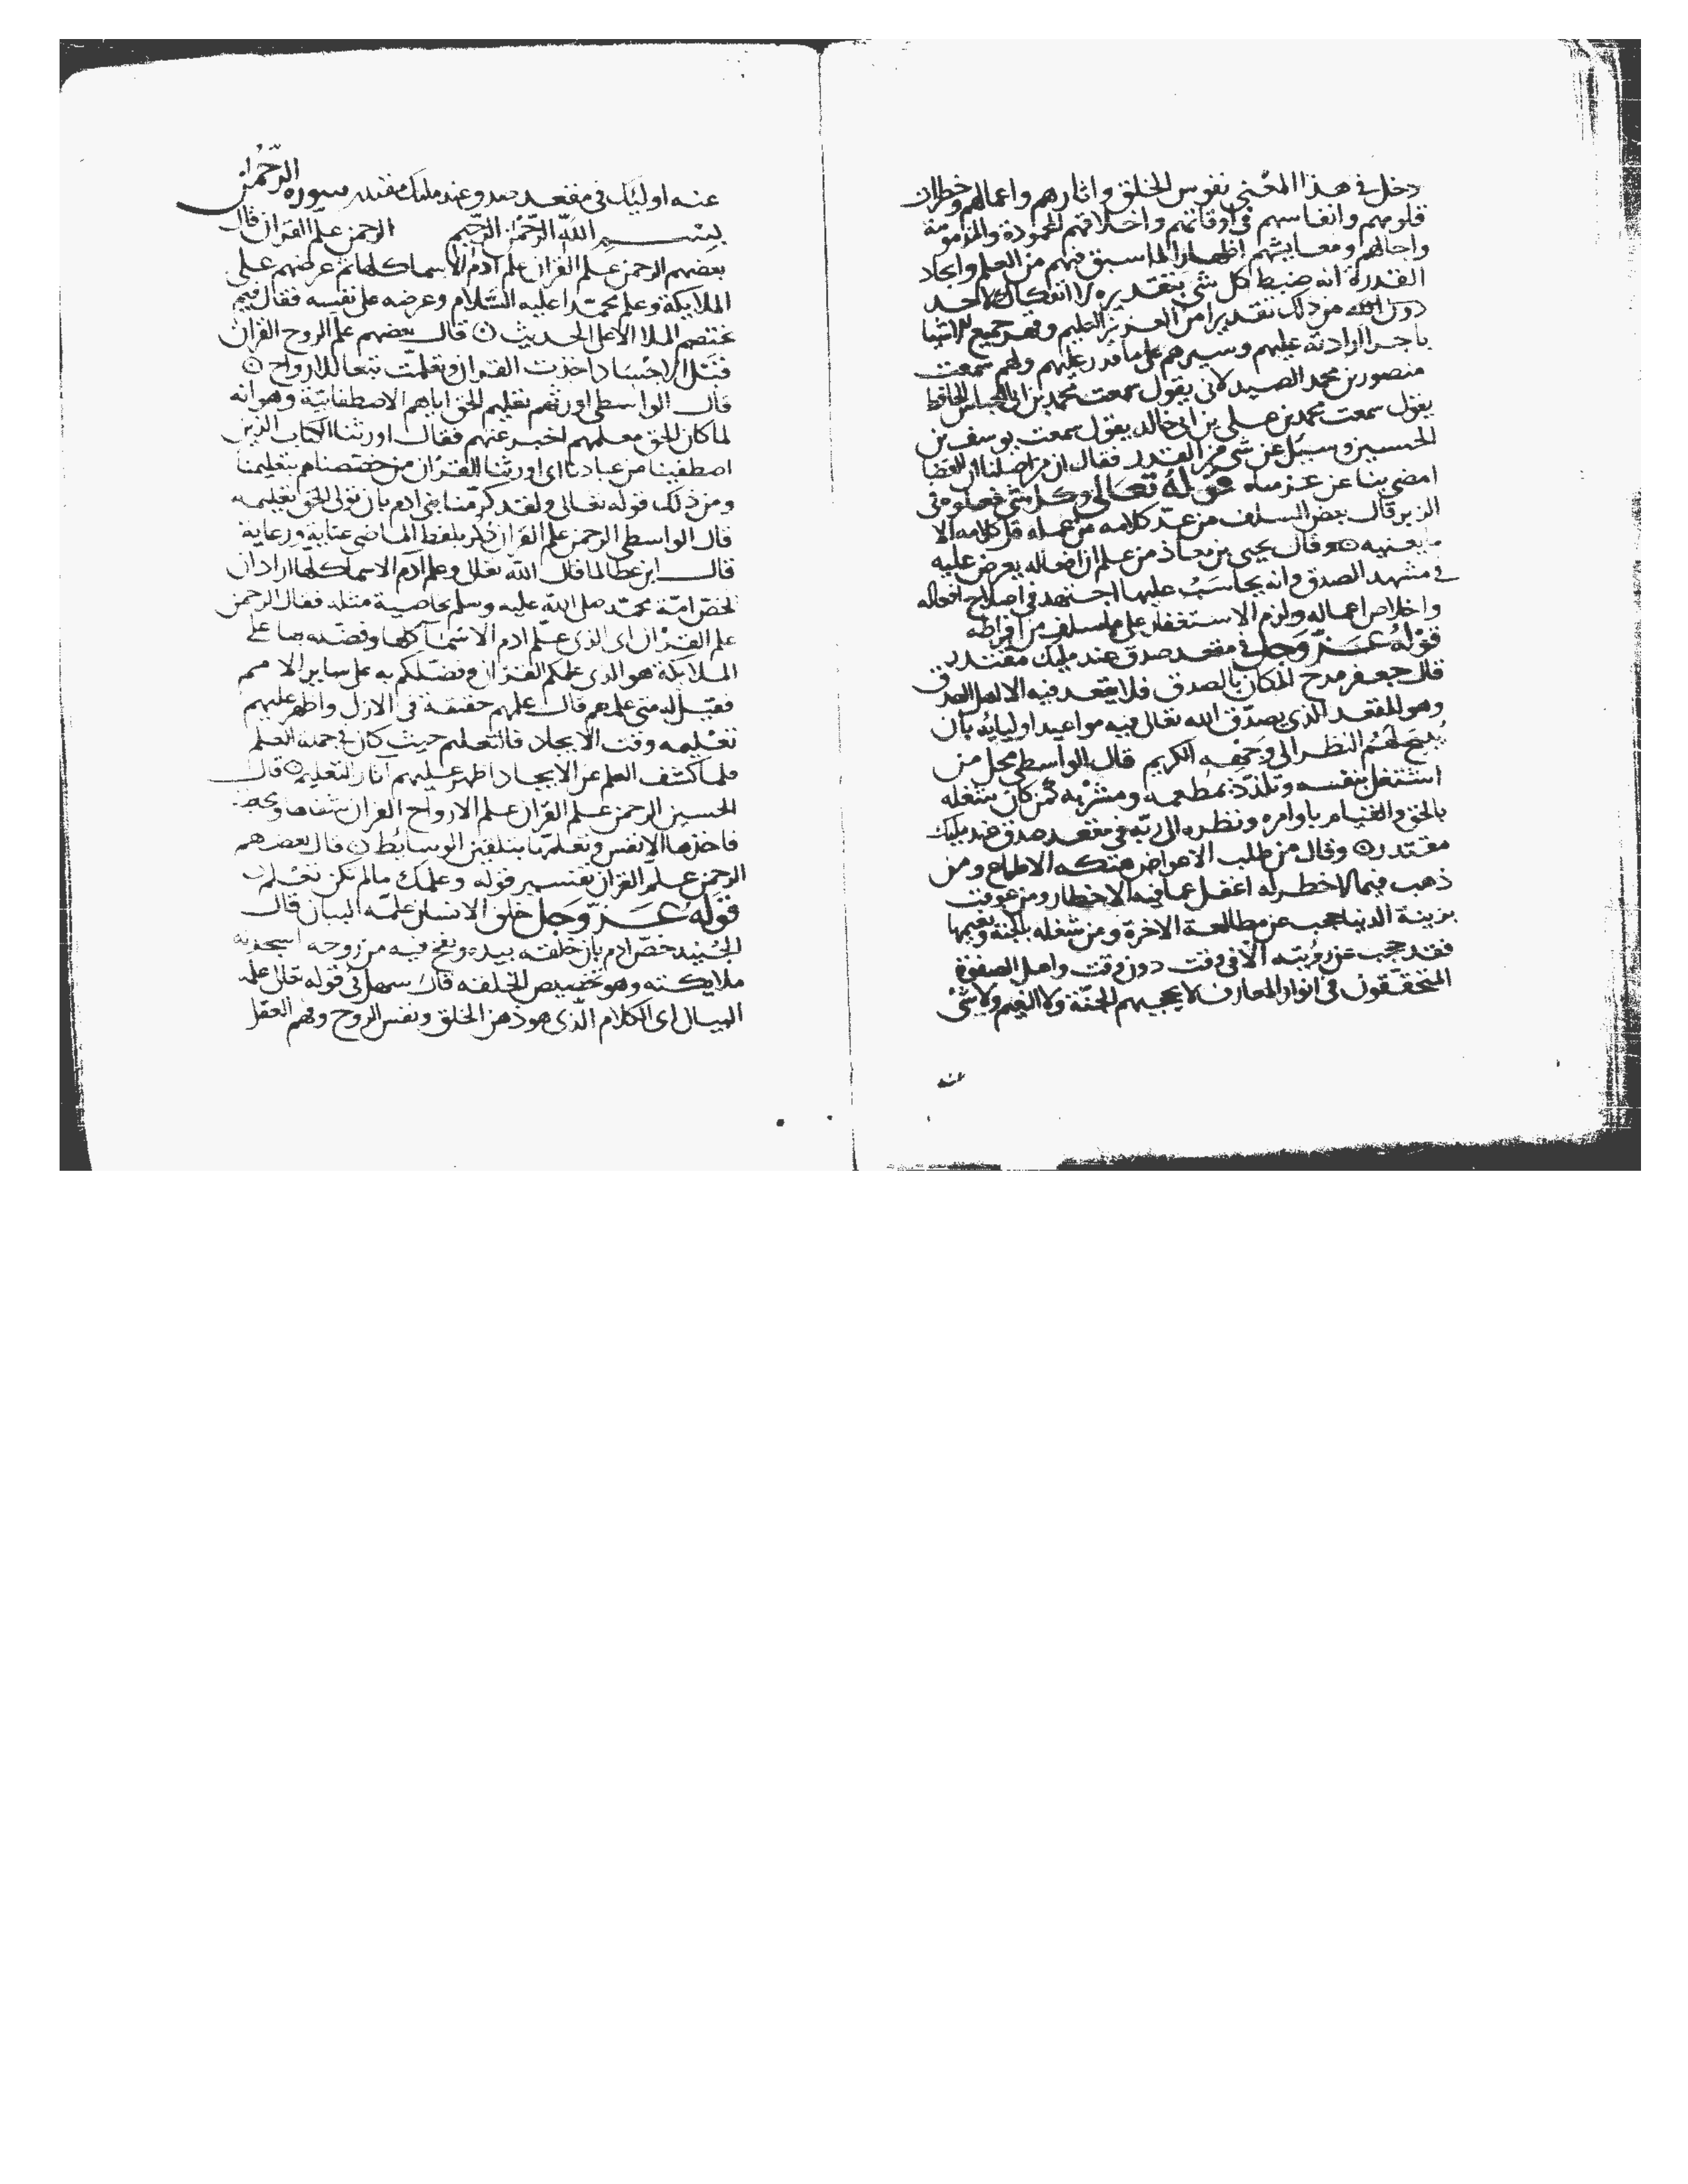 دخل في هذا المعنى نفوس الخلق واثارهم واعمالهم وخطرات
قلوبهم وانفاسهم في اوقاتهم واخلاقهم المحمودة والمذمومة
واجالهم ومعايشهم اظهارا لما سبق فيهم من العلم وايجاد
القدرة انه ضبط كل شي بتقديره لا انفكاك لاحد
دون الله من ذلك تقديرا من العزيز العليم وقهر جميع الاشيا
باجرا ارادته عليهم وسيرهم على ما قدر عليهم ولهم سمعت
منصور بن محمد الصيدلاني يقول سمعت محمد بن ابي العباس الحافظ
يقول سمعت محمد بن علي بن ابي خالد يقول سمعت يوسف بن
الحسين وسيل عن شي من القدر فقال ان من اصلنا ان القضا
امضي بنا عن عزمنا قوله تعالى وكل شي فعلوه في
الزبر قال بعض السلف من عد كلامه من عمله قل كلامه الا
ما يعنيه وقال يحيى بن معاذ من علم ان افعاله يعرض عليه
في مشهد الصدق وانه يحاسب عليها اجتهد في اصلاح افعاله
واخلاص اعماله ولزم الاستغفار على ما سلف من افراطه
قوله عز وجل في مقعد صدق عند مليك مقتدر
قال جعفر مدح المكان بالصدق فلا يقعد فيه الا اهل الصدق
وهو المقعد الذي يصدق الله تعالى فيه مواعيد اوليائه بان
يبيح لهم النظر الى وجهه الكريم قال الواسطي محل من
اشتغل بنفسه وتلذذ بمطعمه ومشربه كمن كان شغله
بالحق والقيام باوامره ونظره الى ربه في مقعد صدق عند مليك
مقتدر وقال من طلب الاعواض هتكه الاطماع ومن
ذهب فيما لا خطر له اغفل عما فيه الاخطار ومن عوقت
بزينة الدنيا حجب عن مطالعة الاخرة ومن شغله بالجنة ونعيمها
فقد حجب عن رؤيته الا في وقت دون وقت واهل الصفوة
المتحققون في انوار المعارف لا يحجبهم الجنة ولا النعيم ولا شي
عنه
عنه اوليك في مقعد صدق عند مليك مقتدر سورة الرحمن
بسم الله الرحمن الرحيم الرحمن علم القرآن قال
بعضهم الرحمن علم القران علم ادم الاسما كلها ثم عرضهم على
الملايكة وعلم محمدا عليه السلام وعرضه على نفسه فقال فيم
يختصم الملا الاعلى الحديث قال بعضهم علم الروح القران
قبل الاجساد اخذت القران وتعلمت تبعا للارواح
قال الواسطي اورثهم تعليم الحق اياهم الاصطفائية وهو انه
لما كان الحق معلمهم اخبر عنهم فقال اورثنا الكتاب الذين
اصطفينا من عبادنا اي اورثنا القران من خصصناهم بتعليمنا
ومن ذلك قوله تعالى ولقد كرمنا بني ادم بان تولى الحق تعليمه
قال الواسطي الرحمن علم القران ذكر بلفظ الماضي عناية ورعاية
قال ابن عطا لما قال الله تعالى وعلم آدم الاسما كلها اراد ان
يخص امة محمد صلى الله عليه وسلم بخاصية مثله فقال الرحمن
علم القرآن اي الذي علم ادم الاسمآ كلها وفضله بها على
الملايكة هو الذي علمكم القرآن وفضلكم به على ساير الامم
فقيل له متى علمهم قال علمهم حقيقة في الازل واظهر عليهم
تعليمه وقت الايجاد فالتعليم حيث كان في جملة العلم
فلما كشف العلم عن الايجاد اظهر عليهم آثار التعليم قال
الحسين الرحمن علم القران علم الارواح القران شفاها وبحظ
فاخذها الانفس وتعلمتها بتلقين الوسائط قال بعضهم
الرحمن علم القران تفسير قوله وعلمك مالم تكن تعلم
قوله عز وجل خلق الانسان علمه البيان قال
الجنيد خص ادم بان خلقته بيده ونفخ فيه من روحه اسجد له
ملايكته وهو تخصيص الخلقة قال سهل في قوله تعالى علمه
البيان اي الكلام الذي هو ذهن الخلق ونفس الروح وفهم العقل